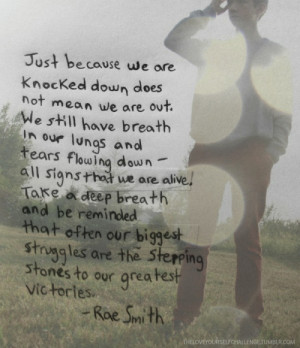 Just because we are
knocked down does
not mean we are out.
We still have breath
in our lungs and
tears flowing down –
all signs that we are alive.
Take a deep breath
and be reminded
that often our biggest
struggles are the stepping
stones to our greatest
victories.
- Rae Smith